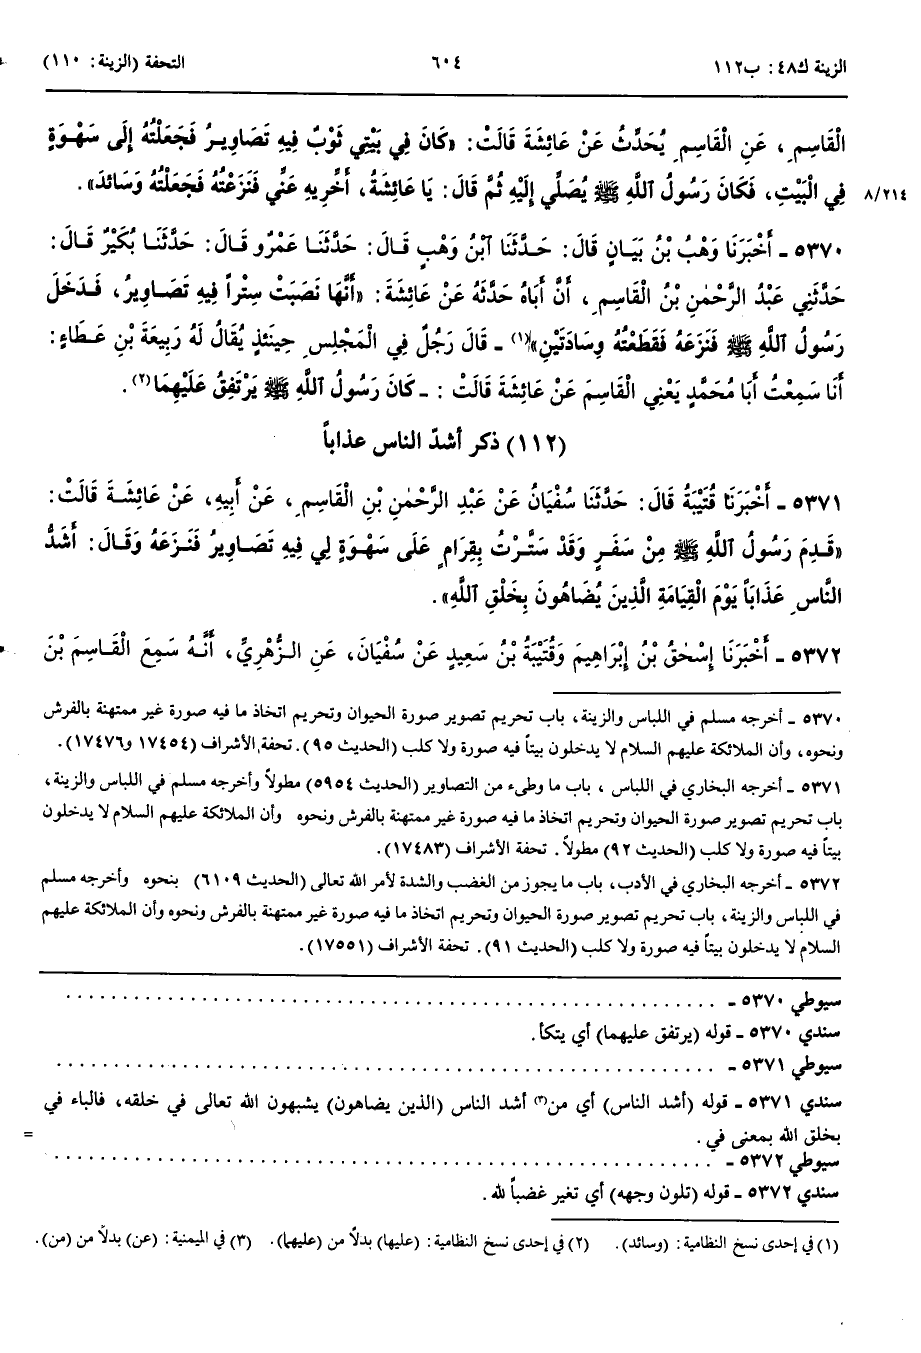 الزينة ك٤٨: ب١١٢ ٦٠٤ التحفة (الزينة: ١١٠)
الْقَاسِمِ، عَنِ الْقَاسِمِ يُحَدِّثُ عَنْ عَائِشَةَ قَالَتْ: «كَانَ فِي بَيْتِي ثَوْبٌ فِيهِ تَصَاوِيرُ فَجَعَلْتُهُ إِلَى سَهْوَةٍ
٨/٢١٤ فِي الْبَيْتِ، فَكَانَ رَسُولُ اللَّهِ ﷺ يُصَلِّي إِلَيْهِ ثُمَّ قَالَ: يَا عَائِشَةُ، أَخِّرِيهِ عَنِّي فَنَزَعْتُهُ فَجَعَلْتُهُ وَسَائِدَ».
٥٣٧٠ ـ أَخْبَرَنَا وَهْبُ بْنُ بَيَانٍ قَالَ: حَدَّثَنَا ابْنُ وَهْبٍ قَالَ: حَدَّثَنَا عَمْرٌو قَالَ: حَدَّثَنَا بُكَيْرٌ قَالَ:
حَدَّثَنِي عَبْدُ الرَّحْمٰنِ بْنُ الْقَاسِمِ، أَنَّ أَبَاهُ حَدَّثَهُ عَنْ عَائِشَةَ: «أَنَّهَا نَصَبَتْ سِتْراً فِيهِ تَصَاوِيرُ، فَدَخَلَ
رَسُولُ اللَّهِ ﷺ فَنَزَعَهُ فَقَطَعْتُهُ وِسَادَتَيْنِ»(١) ـ قَالَ رَجُلٌ فِي الْمَجْلِسِ حِينَئِذٍ يُقَالُ لَهُ رَبِيعَةُ بْنِ عَطَاءٍ:
أَنَا سَمِعْتُ أَبَا مُحَمَّدٍ يَعْنِي الْقَاسِمَ عَنْ عَائِشَةَ قَالَتْ: ـ كَانَ رَسُولُ اللَّهِ ﷺ يَرْتَفِقُ عَلَيْهِمَا(٢).
(١١٢) ذكر أشدّ الناس عذاباً
٥٣٧١ ـ أَخْبَرَنَا قُتَيْبَةُ قَالَ: حَدَّثَنَا سُفْيَانُ عَنْ عَبْدِ الرَّحْمٰنِ بْنِ الْقَاسِمِ، عَنْ أَبِيهِ، عَنْ عَائِشَةَ قَالَتْ:
«قَدِمَ رَسُولُ اللَّهِ ﷺ مِنْ سَفَرٍ وَقَدْ سَتَّرْتُ بِقِرَامٍ عَلَى سَهْوَةٍ لِي فِيهِ تَصَاوِيرُ فَنَزَعَهُ وَقَالَ: أَشَدُّ
النَّاسِ عَذَاباً يَوْمَ الْقِيَامَةِ الَّذِينَ يُضَاهُونَ بِخَلْقِ اللَّهِ».
٥٣٧٢ ـ أَخْبَرَنَا إِسْحٰقُ بْنُ إِبْرَاهِيمَ وَقُتَيْبَةُ بْنُ سَعِيدٍ عَنْ سُفْيَانَ، عَنِ الزُّهْرِيِّ، أَنَّهُ سَمِعَ الْقَاسِمَ بْنَ
٥٣٧٠ ـ أخرجه مسلم في اللباس والزينة، باب تحريم تصوير صورة الحيوان وتحريم اتخاذ ما فيه صورة غير ممتهنة بالفرش
ونحوه، وأن الملائكة عليهم السلام لا يدخلون بيتاً فيه صورة ولا كلب (الحديث ٩٥). تحفة الأشراف (١٧٤٥٤ و١٧٤٧٦).
٥٣٧١ ـ أخرجه البخاري في اللباس، باب ما وطىء من التصاوير (الحديث ٥٩٥٤) مطولاً وأخرجه مسلم في اللباس والزينة،
باب تحريم تصوير صورة الحيوان وتحريم اتخاذ ما فيه صورة غير ممتهنة بالفرش ونحوه وأن الملائكة عليهم السلام لا يدخلون
بيتاً فيه صورة ولا كلب (الحديث ٩٢) مطولاً. تحفة الأشراف (١٧٤٨٣).
٥٣٧٢ ـ أخرجه البخاري في الأدب، باب ما يجوز من الغضب والشدة لأمر الله تعالى (الحديث ٦١٠٩) بنحوه وأخرجه مسلم
في اللباس والزينة، باب تحريم تصوير صورة الحيوان وتحريم اتخاذ ما فيه صورة غير ممتهنة بالفرش ونحوه وأن الملائكة عليهم
السلام لا يدخلون بيتاً فيه صورة ولا كلب (الحديث ٩١). تحفة الأشراف (١٧٥٥١).
سيوطي ٥٣٧٠ ـ ........................................
سندي ٥٣٧٠ ـ قوله (يرتفق عليهما) أي يتكأ.
سيوطي ٥٣٧١ ـ ........................................
سندي ٥٣٧١ ـ قوله (أشد الناس) أي من(٣) أشد الناس (الذين يضاهون) يشبهون الله تعالى في خلقه، فالباء في
بخلق الله بمعنى في. =
سيوطي ٥٣٧٢ ـ ........................................
سندي ٥٣٧٢ ـ قوله (تلون وجهه) أي تغير غضباً لله.
(١) في إحدى نسخ النظامية: (وسائد). (٢) في إحدى نسخ النظامية: (عليها) بدلاً من (عليهما). (٣) في الميمنية: (عن) بدلاً من (من).